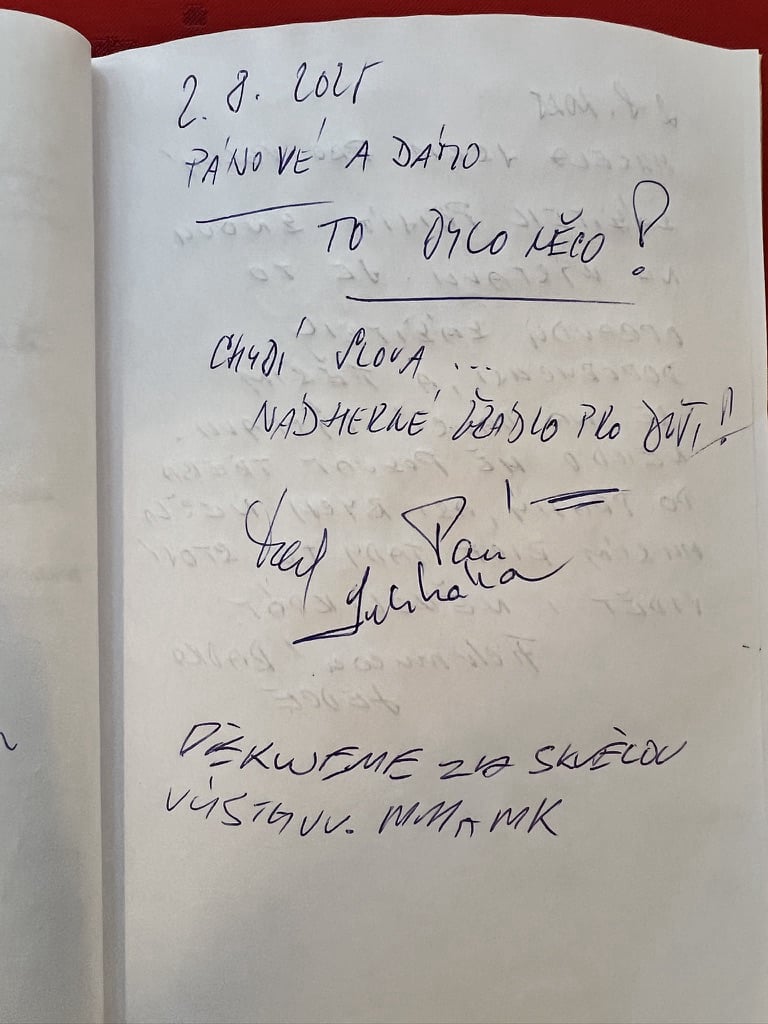 2. 8. 2025
PÁNOVÉ A DÁMO
TO BYLO NĚCO!
CHYBÍ SLOVA...
NÁDHERNÉ PRO DĚTI!!
DĚKUJEME ZA SKVĚLOU
VÝSTAVU. MM A MK